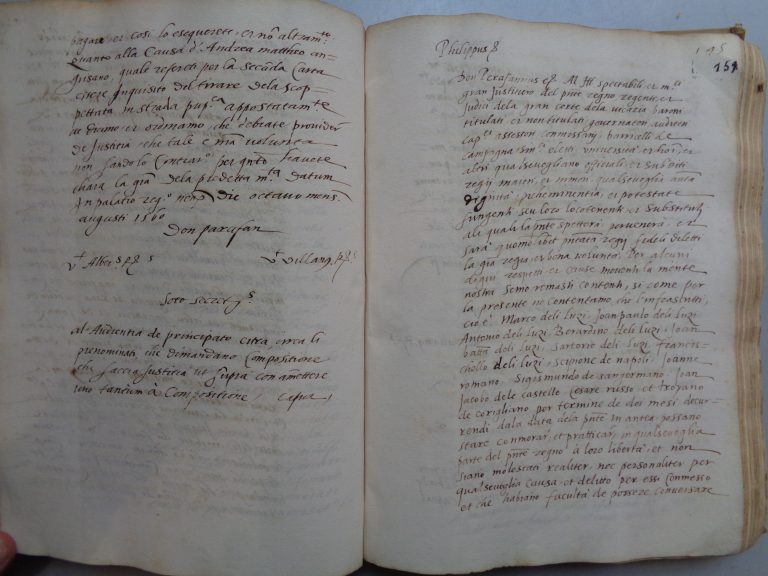 pagare et cosi lo esequerete, et nõ altram.te
Quanto alla Causa d'Andrea mattheo
quale refereti per la secũda Carta
inquisito del tirare dela scop-
pettata in strada pup.ca appostatam.te
ve dicimo, et ordinamo, che debiate provider
de Justicia che tale è mia volunta
non fandolo per quãto havete
chara la grã dela predetta m.tà datum
In palatio reg.o die octavo mens.
augusti 1560
Don parafan
v.t Alber. v.t Villan.
Soto secret.
al Audientia de principato citra circa li
prenominati che demandano compositione
che faccia Justitia ut supra con amettere
uno tantum à Compositione
Philippus &
145
151
Don Perafannus &. Al Ill. spectabili et m.ci
gran Justitiero del pñte regno regente, et
Judici dela gran corte dela vicaria baroni
titulati et non titulati, governatori audien
cap.nei assessori commissarij, barricelli de
campagna eletti, università et hoi, et
altri qualsevogliano officiali, et subditi
regij maiori, et minori qualsevoglia
dignità preeminentia, et potestate
fungenti seu loro locotenenti et Substituti
ali quali la pñte spetterà, pervenerà, et
sarà quomolibet pñtata regij fideli diletti
la grã regia et bona voluntà. Per alcuni
digni respetti et cause moventi la mente
nostra Semo remasti contenti, si come per
la presente ne contentamo, che l'infrascritti,
cioè. Marco deli luzi, Joanpaulo deli luzi
Antonio deli luzi, Berardino deli luzi, Joan
batt.a deli luzi, Sartorio deli luzi, Francis-
chello deli luzi, Scipione de napoli, Joanne
romano, Sigismundo de sangermano, Joan
Jacobo dele castelle, Cesare russo, et troyano
de corigliano per termine de doi mesi decur-
rendi dala data dela pñte in antea possano
stare conmorar, et pratticar, in qualsevoglia
parte del pñte regno à loro libertà, et non
siano molestati realiter, nec personaliter per
qualsevoglia causa, et delitto per essi commesso
et che habiano facultà de possere conversare